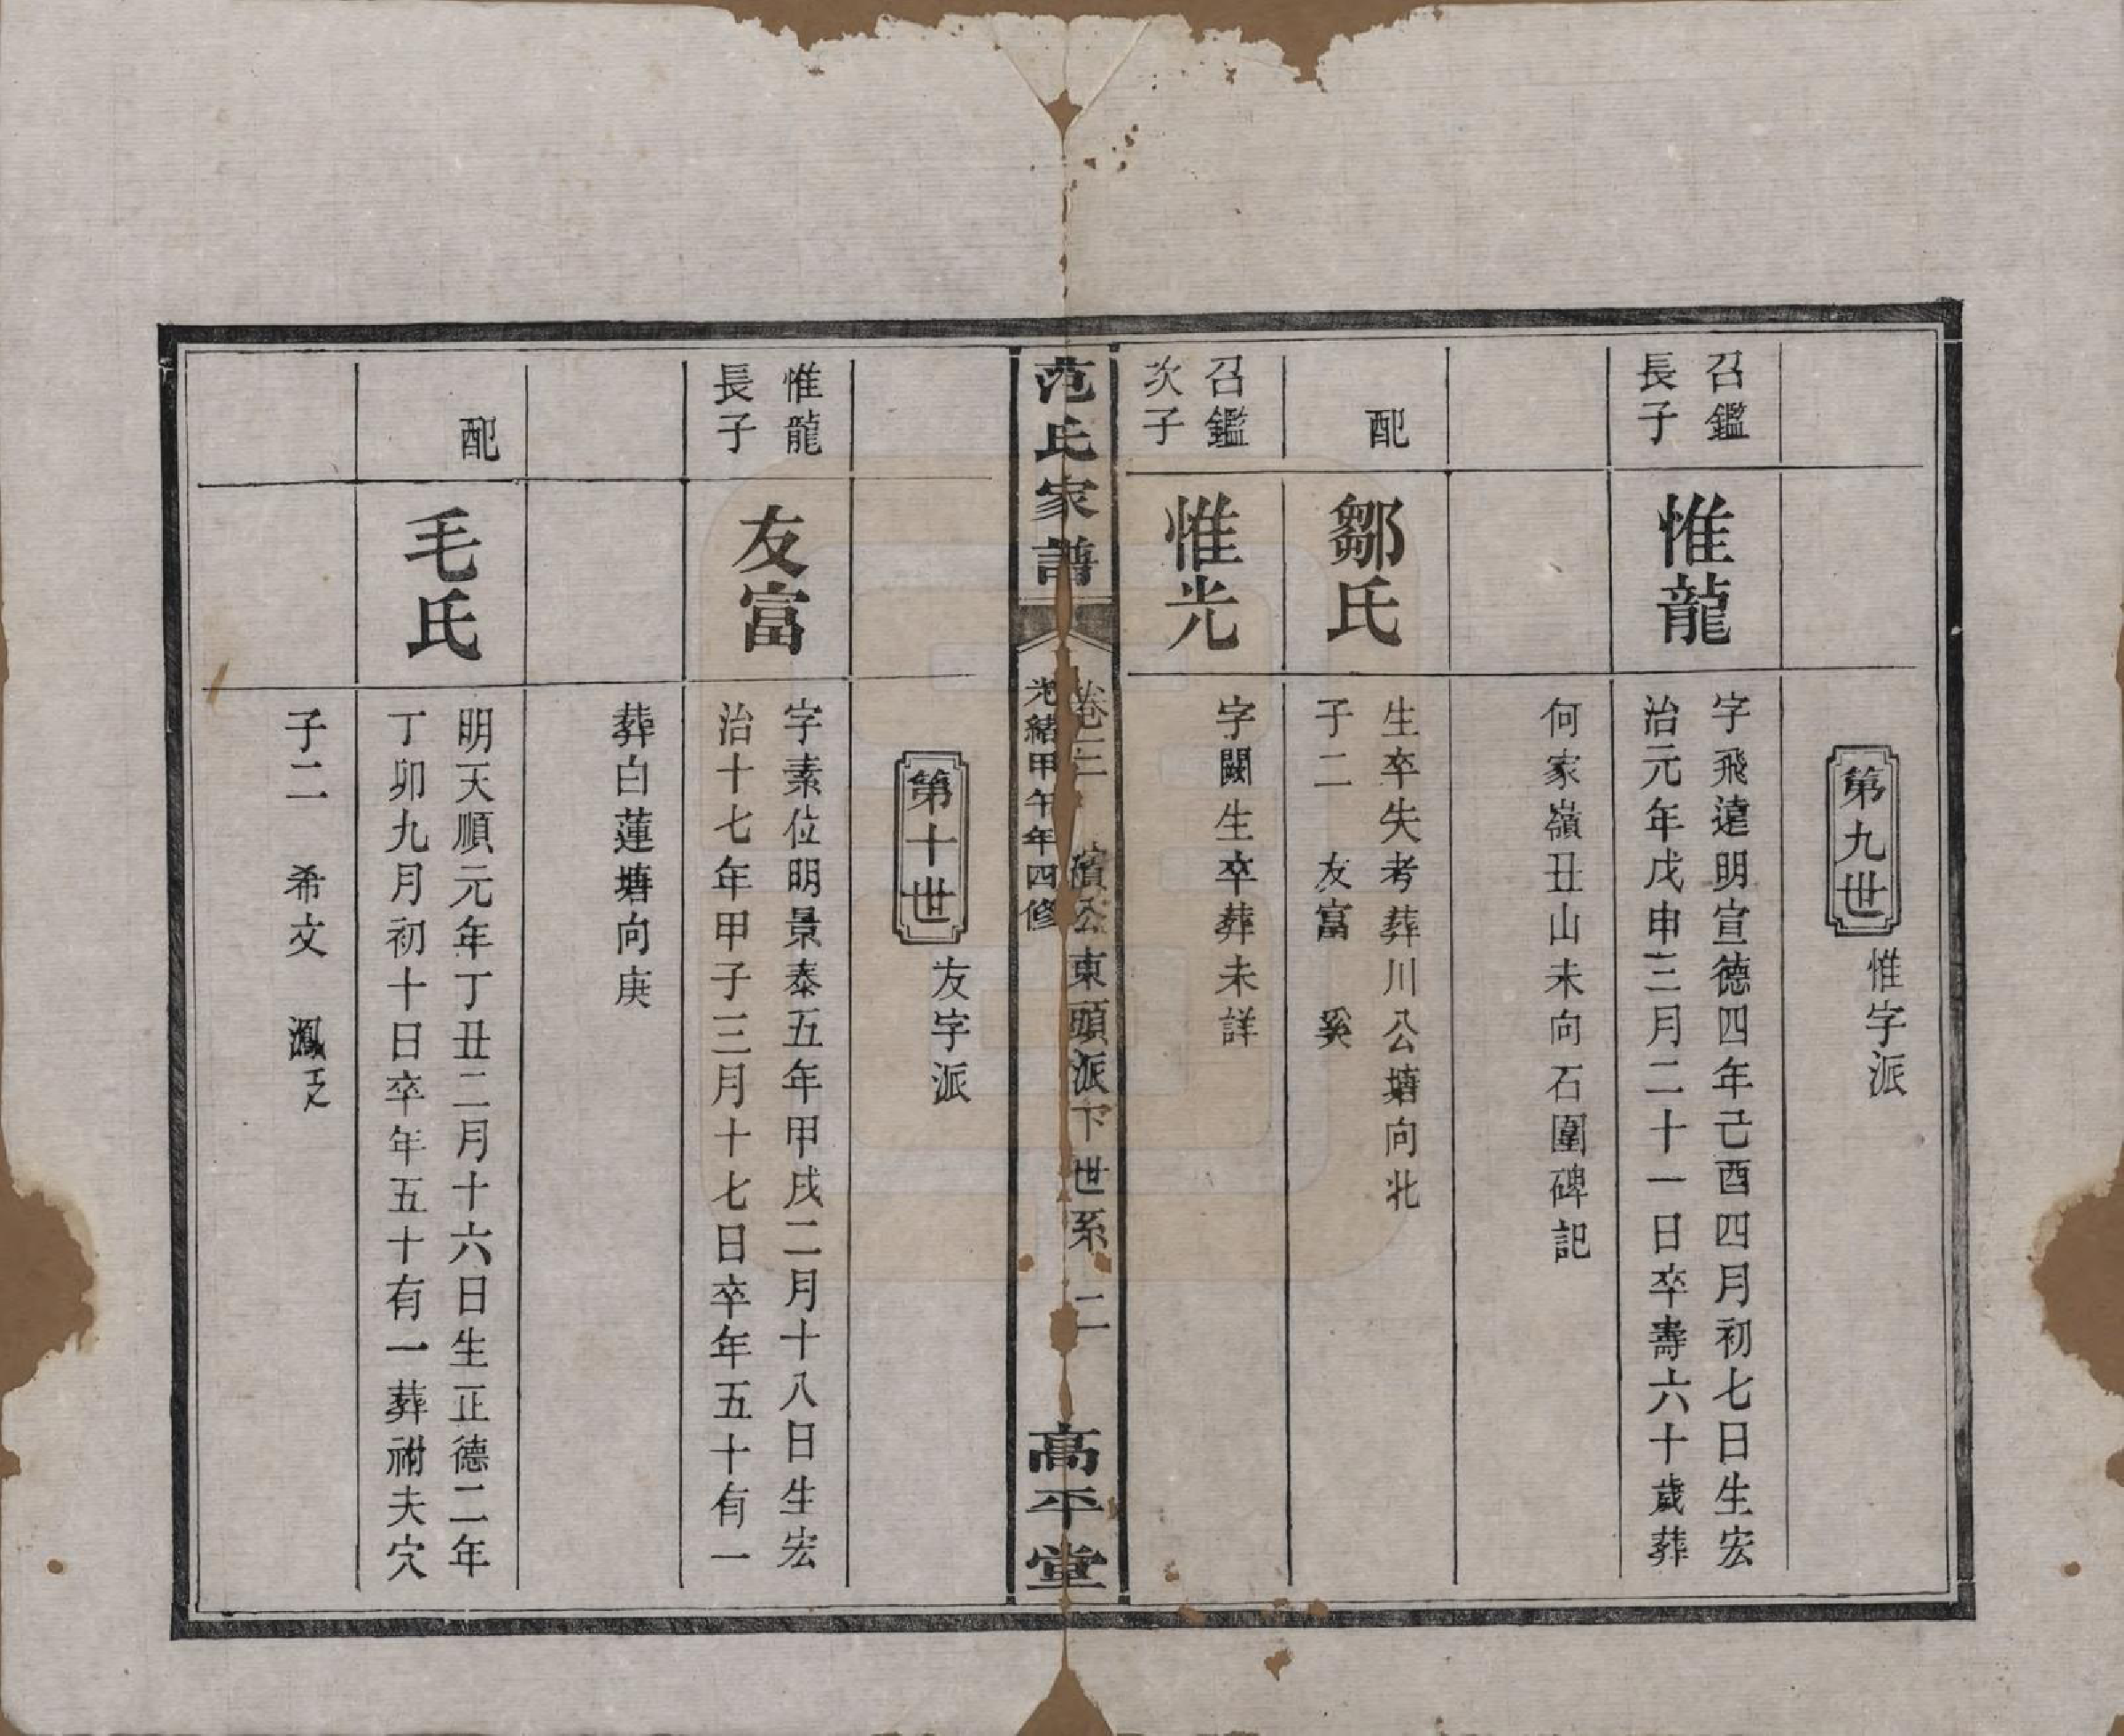 第九世
惟字派
召鑑
長子
惟龍
字飛遠明宣德四年己酉四月初七日生宏
治元年戊申三月二十一日卒壽六十歲葬
何家嶺丑山未向石圍碑記
配
鄒氏
生卒失考葬川公塘向北
子二 友富 奚
召鑑
次子
惟光
字闕生卒葬未詳
范氏家譜
卷二 公東頭派下世系 二
光緒甲午年四修
高平堂
第十世
友字派
惟龍
長子
友富
字素位明景泰五年甲戌二月十八日生宏
治十七年甲子三月十七日卒年五十有一
葬白蓮塘向庚
配
毛氏
明天順元年丁丑二月十六日生正德二年
丁卯九月初十日卒年五十有一葬祔夫穴
子二 希文 鳳